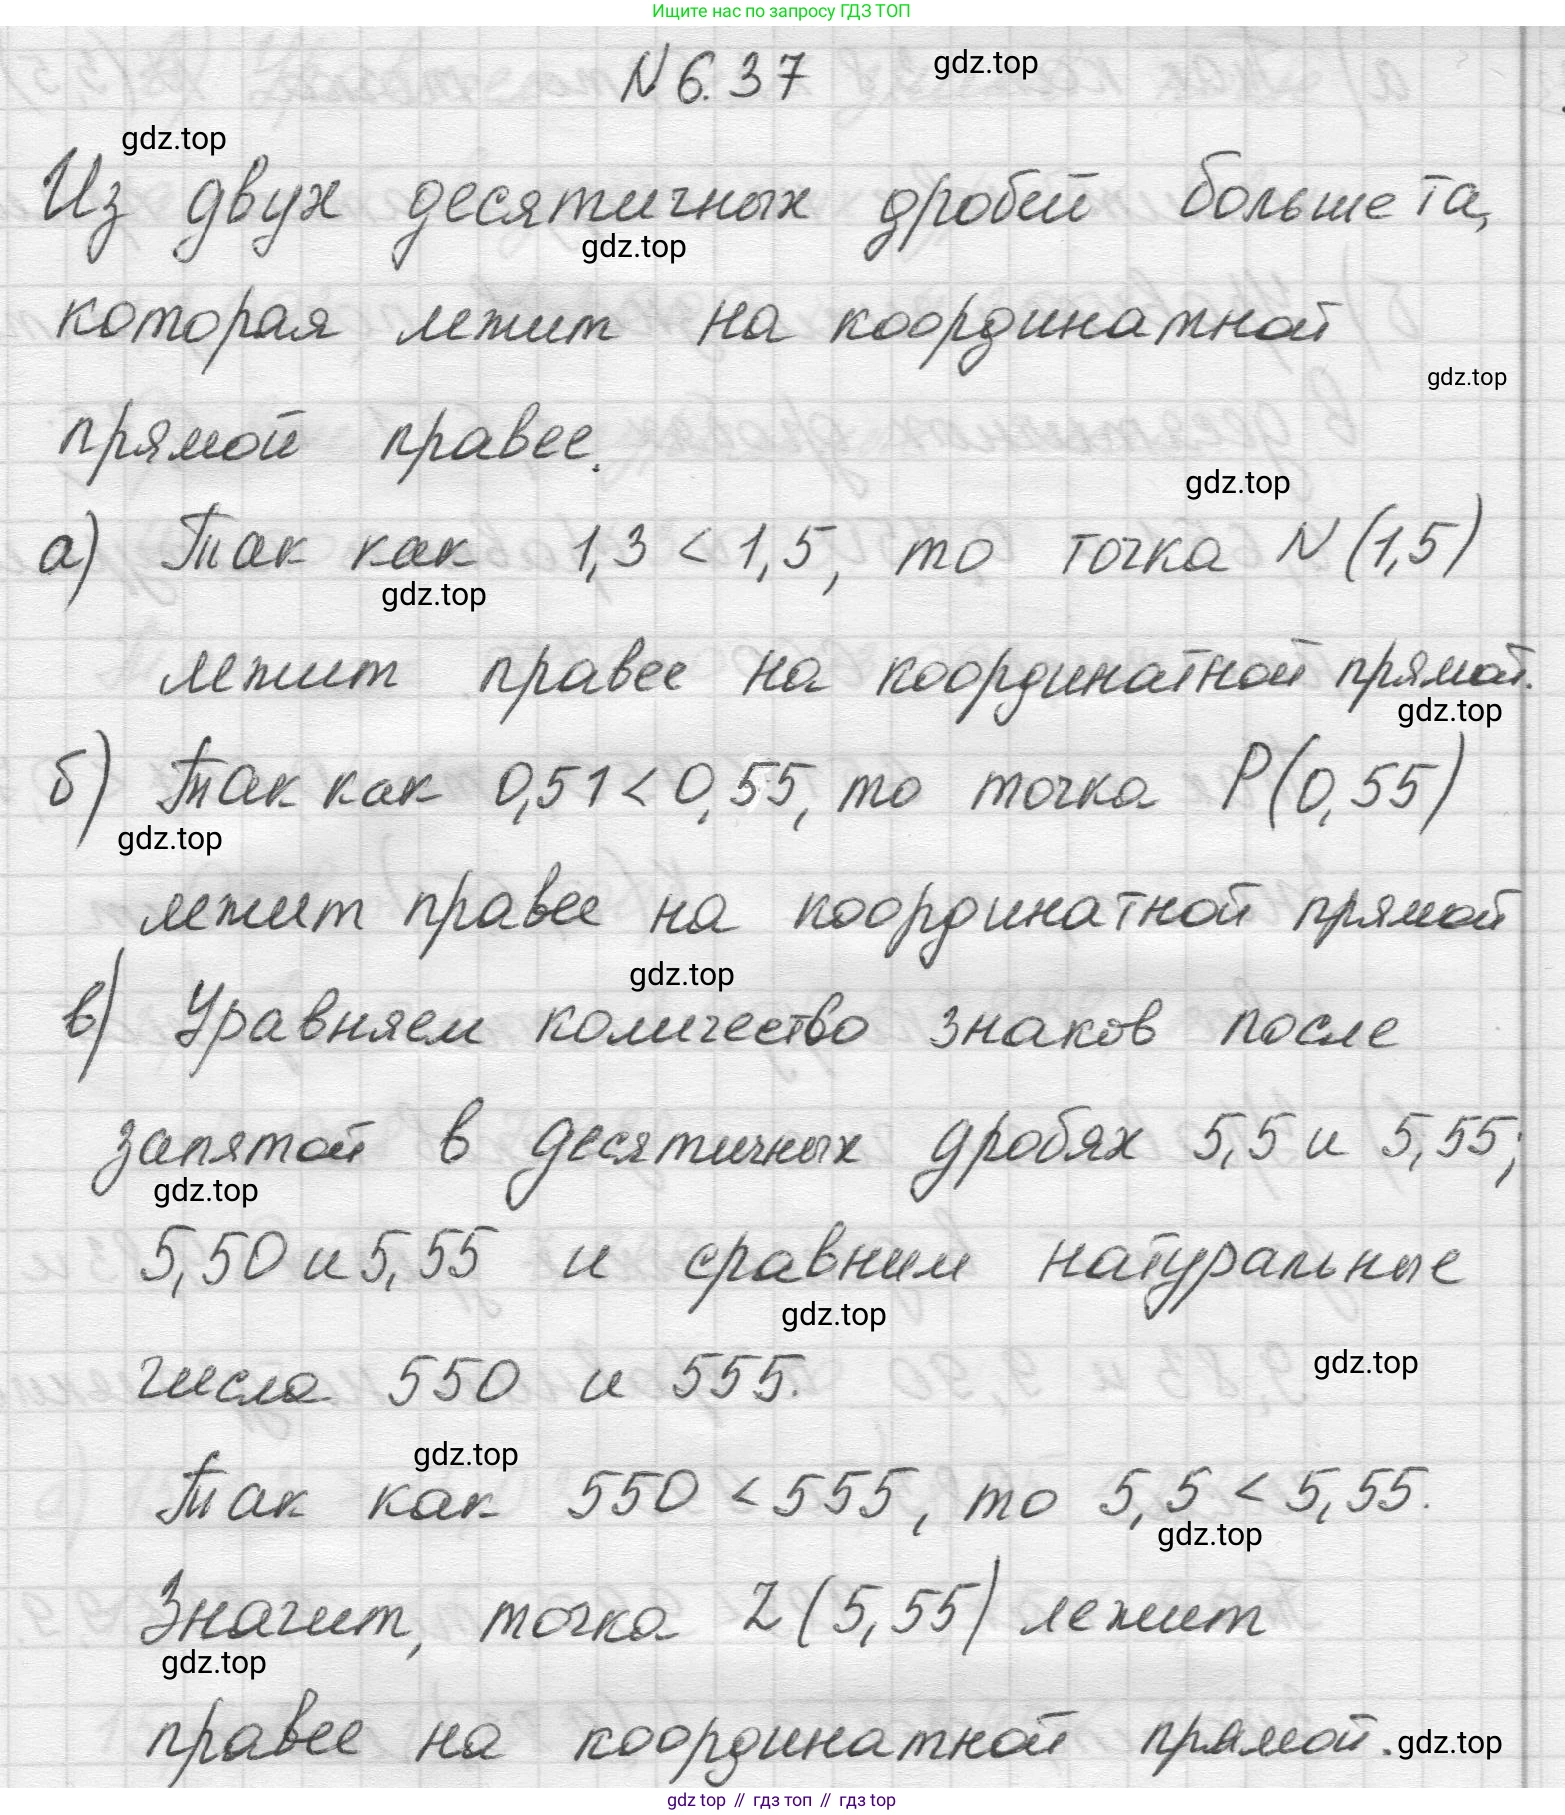 Ищите нас по запросу ГДЗ ТОП
N 6.37
gdz.top
gdz.top
Из двух десятичных дробей больше та,
gdz.top
которая лежит на координатной
gdz.top
прямой правее.
gdz.top
а) Так как 1,3 < 1,5, то точка N(1,5)
gdz.top
лежит правее на координатной прямой.
gdz.top
б) Так как 0,51 < 0,55, то точка P(0,55)
gdz.top
лежит правее на координатной прямой
gdz.top
в) Уравняем количество знаков после
запятой в десятичных дробях 5,5 и 5,55;
gdz.top
5,50 и 5,55 и сравним натуральные
gdz.top
числа 550 и 555.
gdz.top
gdz.top
Так как 550 < 555, то 5,5 < 5,55.
gdz.top
Значит, точка Z(5,55) лежит
gdz.top
правее на координатной прямой.
gdz.top
gdz top // гдз топ // гдз top